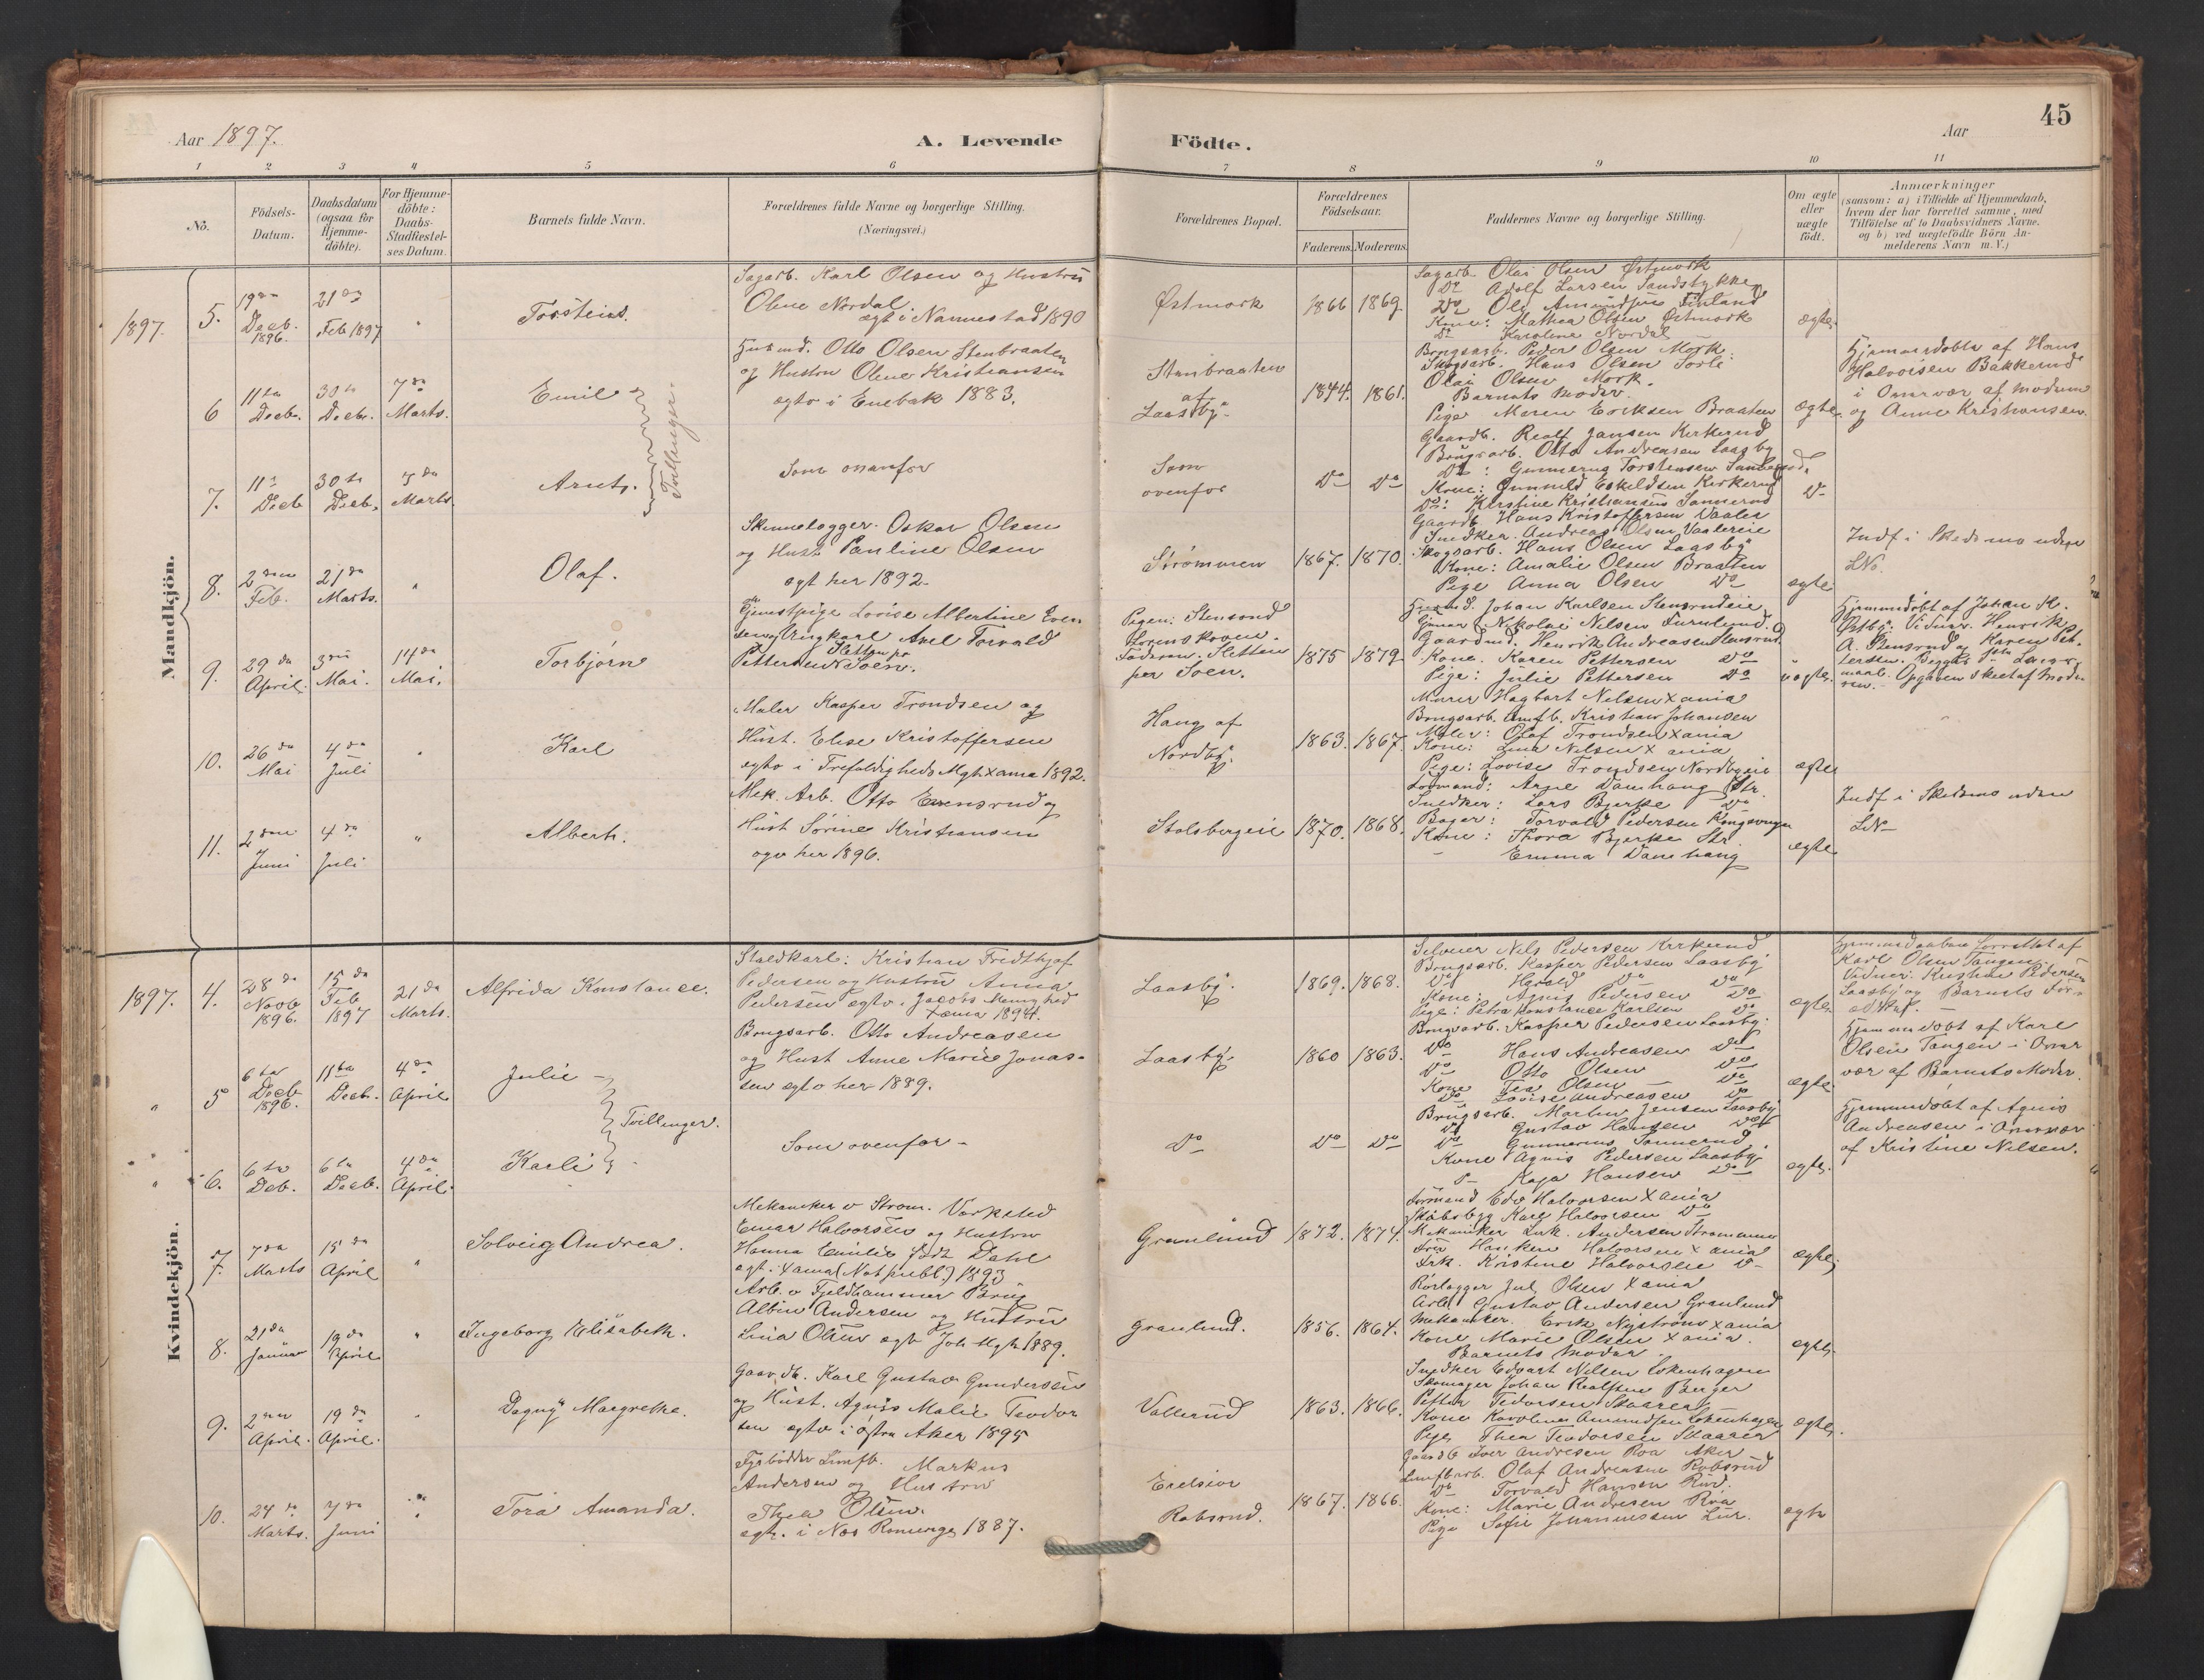 45
Aar 1897.
A. Levende
Födte.
Aar
1
2
3
4
5
6
7
8
9
10
11
No.
Födsels-
Datum.
Daabsdatum
(ogsaa for
Hjemme-
döbte).
For Hjemme-
döbte:
Daabs-
Stadfæstel-
ses Datum.
Barnets fulde Navn.
Forældrenes fulde Navne og borgerlige Stilling.
(Næringsvei.)
Forældrenes Bopæl.
Forældrenes
Födselsaar.
Faderens.
Moderens.
Faddernes Navne og borgerlige Stilling.
Om ægte
eller
uægte
födt.
Anmærkninger
(saasom: a) i Tilfælde af Hjemmedaab,
hvem der har forrettet samme, med
Tilföielse af to Daabsvidners Navne.
og b) ved uægtefödte Börn An-
melderens Navn m. V.)
Mandkjön.
1897.
5.
19
Decb.
1896.
21
Feb 1897
"
Torstein.
Sagarb. Karl Olsen og Hustru
Oline Nordal.
egt i Nannestad 1890
Østmork
1866
1869
Sagarb. Olai Olsen Østmork
Do Adolf Larsen Sandstykket
Do Ole Amundsen Finland
Kone: Mathea Olsen Østmork
Do Karoline Nordal
ægte
6
11te
Decb.
30te
Decb.
7de
Marts.
Emil
Tvillinger
Husmd. Otto Olsen Stenbraaten
og Hustru Oline Kristiansen
egtv i Enebak 1883.
Stenbraaten
af
Laasby.
1844.
1861.
Brugsarb. Peder Olsen Mork.
Skogsarb. Hans Olsen
Olai Olsen Mork.
Barnets Moder.
Pige Maren Eriksen Braaten
ægte.
Hjemmedøbte af Hans
Halvorsen Bakkerud
i Overvær af Modern
og Anne Kristiansen.
7.
11
Decb
30te
Decb.
7de
Marts.
Arnt.
Som ovenfor
Som
ovenfor
Do
Do
Gaardb. Realf Jansen Kirkerud
Brugsarb. Otto Andreasen Laasby
Do: Gunnerus Torstensen
Kone: Gunhild Eskildsen Kirkerud
Do: Kirstine Kristiansen Sannerud
Do
8.
2den
Feb.
21de
Marts.
"
Olaf.
Skinnelægger. Oskar Olsen
og Hust. Pauline Olsen
egt her 1892.
Strømmen
1867.
1870.
Gaardb. Hans Kristoffersen Vaaler
Snedker. Andreas Olsen Vaalereie
Skogsarb. Hans Olsen Laasby
Kone: Amalie Olsen Braaten
Pige Anna Olsen Do
ægte
Indf i Skedsmo uden
LNo.
9.
29de
April.
3die
Mai.
14de
Mai.
Torbjørn
Tjenestpige Lovise Albertine Even
sen og Ungkarl Axel Torvald
Pettersen Sletten pr Soen.
Pigen: Stensrud
Lorenskoven.
Faderen. Sletten
per Soen.
1875
1879
Husmd. Johan Karlsen Stensrudeie
Nikolai Nilsen Furulund.
Gaardmd. Henrik Andreasen Stensrud
Kone. Karen Pettersen Do
Pige: Julie Pettersen Do
uægte.
Hjemmedøbt af Johan K.
Østby. Vidner. Henrik
A. Stensrud og Karen Pet-
tersen. Begges 1ste Leier-
maal. Opgaven skeet af Mode-
ren.
10.
26de
Mai
4de
Juli
"
Karl
Maler Kasper Trondsen og
Hust. Elise Kristoffersen
egtv i Trefoldigheds Mgh Xania 1892.
Haug af
Nordby.
1863.
1867.
Murer Hagbart Nilsen Xania
Brugsarb. Kristian Johansen
Maler: Olaf Trondsen Xania
Kone: Lina Nilsen Xania
Pige: Lovise Trondsen Nordbyeie
ægte
11.
2den
Juni
4de
Juli
"
Albert.
Mek. Arb. Otto Evensrud og
Hust Sørine Kristiansen
egv her 1896.
Stolsbergeie
1870.
1868.
Formand: Arne Damhaug Str.
Snedker: Lars Bjerke Do
Bager: Torvald Pedersen Kongsvinger
Kone: Thora Bjerke Str.
Emma Damhaug
ægte
Indf i Skedsmo uden
LNo
Kvindekjön.
1897.
4.
28de
Novb
1896.
15de
Feb
1897
21de
Marts.
Alfrida Konstance.
Staldkarl: Kristian Fridthjof
Pedersen og Hustru Anna
Pedersen egtv. i Jacobs Menighed
Xania 1894.
Laasby.
1869.
1868.
Nils Pedersen Kirkerud
Brugsarb. Kasper Pedersen Laasby
Do Harald Do Do
Kone: Agnes Pedersen Do
Pige: Petra Konstance Karlsen Do
ægte
Hjemmedaaben forrettet af
Karl Olsen Tangen
Vidner: Kristine Pedersen
Laasby og Barnets For-
ældre.
"
5
6te
Decb
1896.
11te
Decb.
4de
April
Julie
Tvillinger.
Brugsarb. Otto Andreasen
og Hust Anne Marie Jonas-
sen egtv her 1889.
Laasby.
1860
1863.
Brugsarb. Kasper Pedersen Laasby.
Do Hans Andreasen Do
Do Otto Olsen Do
Kone Fia Olsen Do
Do Lovise Andreasen Do
ægte
Hjemmedøbt af Karl
Olsen Tangen i Over
vær af Barnets Moder.
"
6.
6te
Deb.
6te
Decb.
4de
April.
Karli
Som ovenfor
Do
Do
Do
Brugsarb. Martin Jensen Laasby
Do Gustav Hansen Do
Do Gunnerius Sannerud
Kone Agnes Pedersen Laasby
Kaja Hansen Do
ægte.
Hjemmedøbt af Agnes
Andreasen i Overvær
af Kristine Nilsen.
7.
7de
Marts
15de
April
"
Solveig Andrea.
Mekaniker v Strøm. Verksted
Einar Halvorsen og Hustru
Hanna Emilie født Dahl
egt. i Xania (Not publ.) 1893
Granlund
1872.
1874.
Formand Edv Halvorsen Xania
Skibsbyg Karl Halvorsen Do
Mekaniker Andersen Strømmen
Halvorsen Xania
Frk. Kristine Halvorsen Do
ægte.
8.
21de
Januar
19de
April
"
Ingeborg Elisabeth.
Arb. v Fjeldhammer Brug
Albin Andersen og Hustru
Lina Olsen egt Joh Mgh 1889.
Granlund.
1856.
1864.
Rørlægger Jul Olsen Xania
Arb. Gustav Andersen Granlund
Mekaniker. Erik Nystrøm Xania
Kone Marie Olsen Xania.
Barnets Moder.
ægte.
9.
2den
April.
19de
April.
"
Dagny Margrethe.
Gaardb. Karl Gustav Gundersen
og Hust. Agnes Malie Teodor
sen egtv i Østre Aker 1895
Vallerud
1863.
1866.
Snedker Edvart Nilsen Lokenhagen
Skomager Johan Realfsen Berger
Petter Tedorsen Skaarer
Kone Karoline Amundsen Lokenhagen
Pige Thea Teodorsen Skaarer
ægte.
10.
24de
Marts.
7de
Juni
"
Tora Amanda.
Fyrbøder Markus
Andersen og Hustru
Thea Olsen.
egt. i Nes Romerige 1887.
Exelsior
Robsrud.
1867.
1866.
Gaardb Iver Andresen Roa Aker
Olaf Andreasen Robsrud
Do Torvald Hansen
Kone: Marie Andresen Roa
Pige Sofie Johannessen
egte